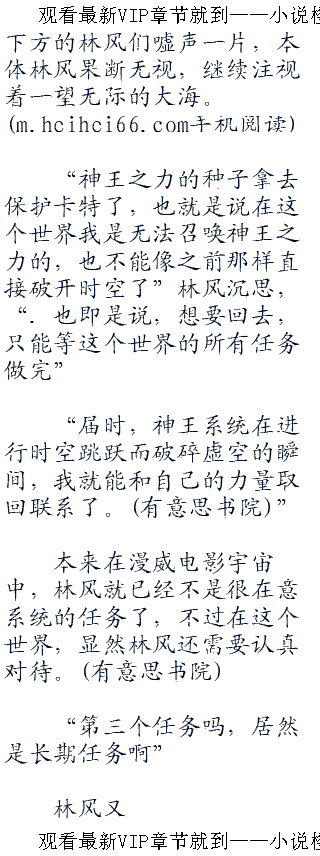 观看最新VIP章节就到——小说检
下方的林风们嘘声一片，本
体林风果断无视，继续注视
着一望无际的大海。
(m.hcihci66.com手机阅读)
“神王之力的种子拿去
保护卡特了，也就是说在这
个世界我是无法召唤神王之
力的，也不能像之前那样直
接破开时空了”林风沉思，
“. 也即是说，想要回去，
只能等这个世界的所有任务
做完”
“届时，神王系统在进
行时空跳跃而破碎虚空的瞬
间，我就能和自己的力量取
回联系了。(有意思书院)”
本来在漫威电影宇宙
中，林风就已经不是很在意
系统的任务了，不过在这个
世界，显然林风还需要认真
对待。(有意思书院)
“第三个任务吗，居然
是长期任务啊”
林风又
观看最新VIP章节就到——小说检